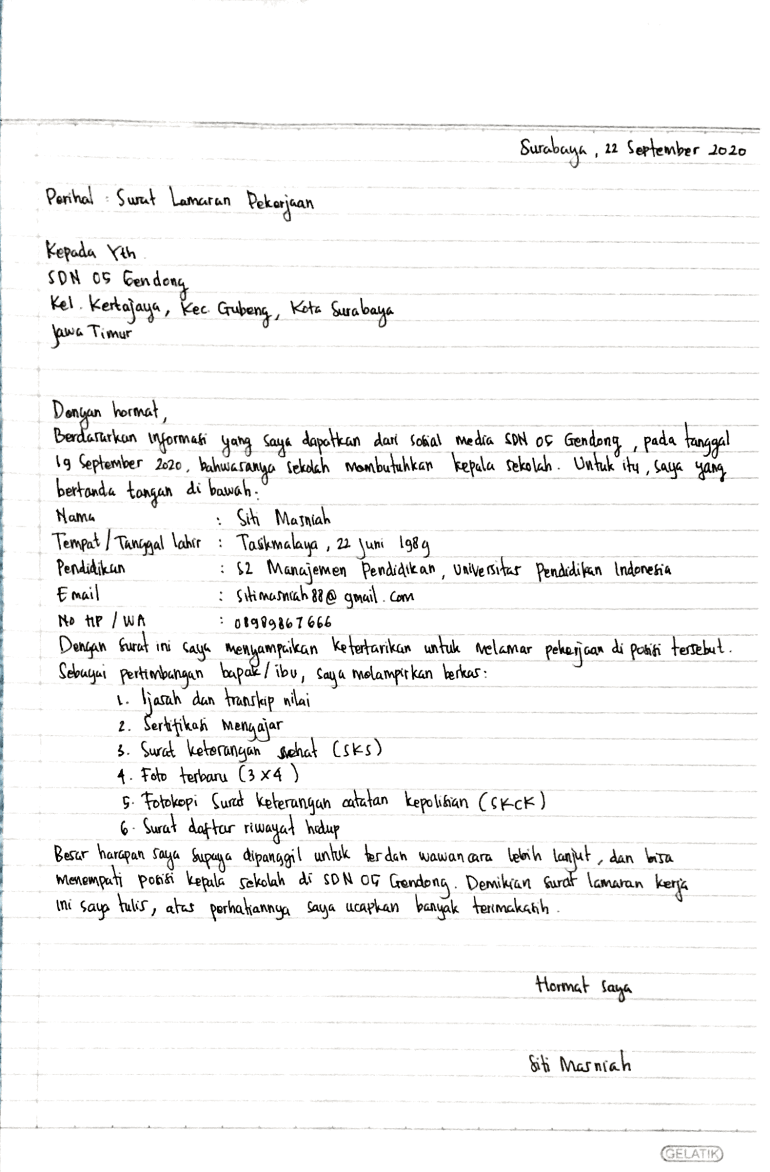 Surabaya, 22 September 2020
Perihal : Surat Lamaran Pekerjaan
Kepada Yth
SDN 05 Gendong
Kel. Kertajaya, Kec. Gubeng, Kota Surabaya
Jawa Timur
Dengan hormat,
Berdasarkan informasi yang saya dapatkan dari sosial media SDN 05 Gendong, pada tanggal
19 September 2020, bahwasanya sekolah membutuhkan kepala sekolah. Untuk itu, saya yang
bertanda tangan di bawah:
Nama : Siti Masniah
Tempat/Tanggal lahir : Tasikmalaya, 22 Juni 1989
Pendidikan : S2 Manajemen Pendidikan, Universitas Pendidikan Indonesia
Email : sitimasniah88@gmail.com
No HP / WA : 08989867666
Dengan surat ini saya menyampaikan ketertarikan untuk melamar pekerjaan di posisi tersebut.
Sebagai pertimbangan bapak/ibu, saya melampirkan berkas:
1. Ijasah dan transkip nilai
2. Sertifikasi Mengajar
3. Surat keterangan sehat (SKS)
4. Foto terbaru (3x4)
5. Fotokopi Surat keterangan catatan kepolisian (SKCK)
6. Surat daftar riwayat hidup
Besar harapan saya supaya dipanggil untuk tes dan wawancara lebih lanjut, dan bisa
menempati posisi kepala sekolah di SDN 05 Gendong. Demikian surat lamaran kerja
ini saya tulis, atas perhatiannya saya ucapkan banyak terimakasih.
Hormat saya
Siti Masniah
GELATIK